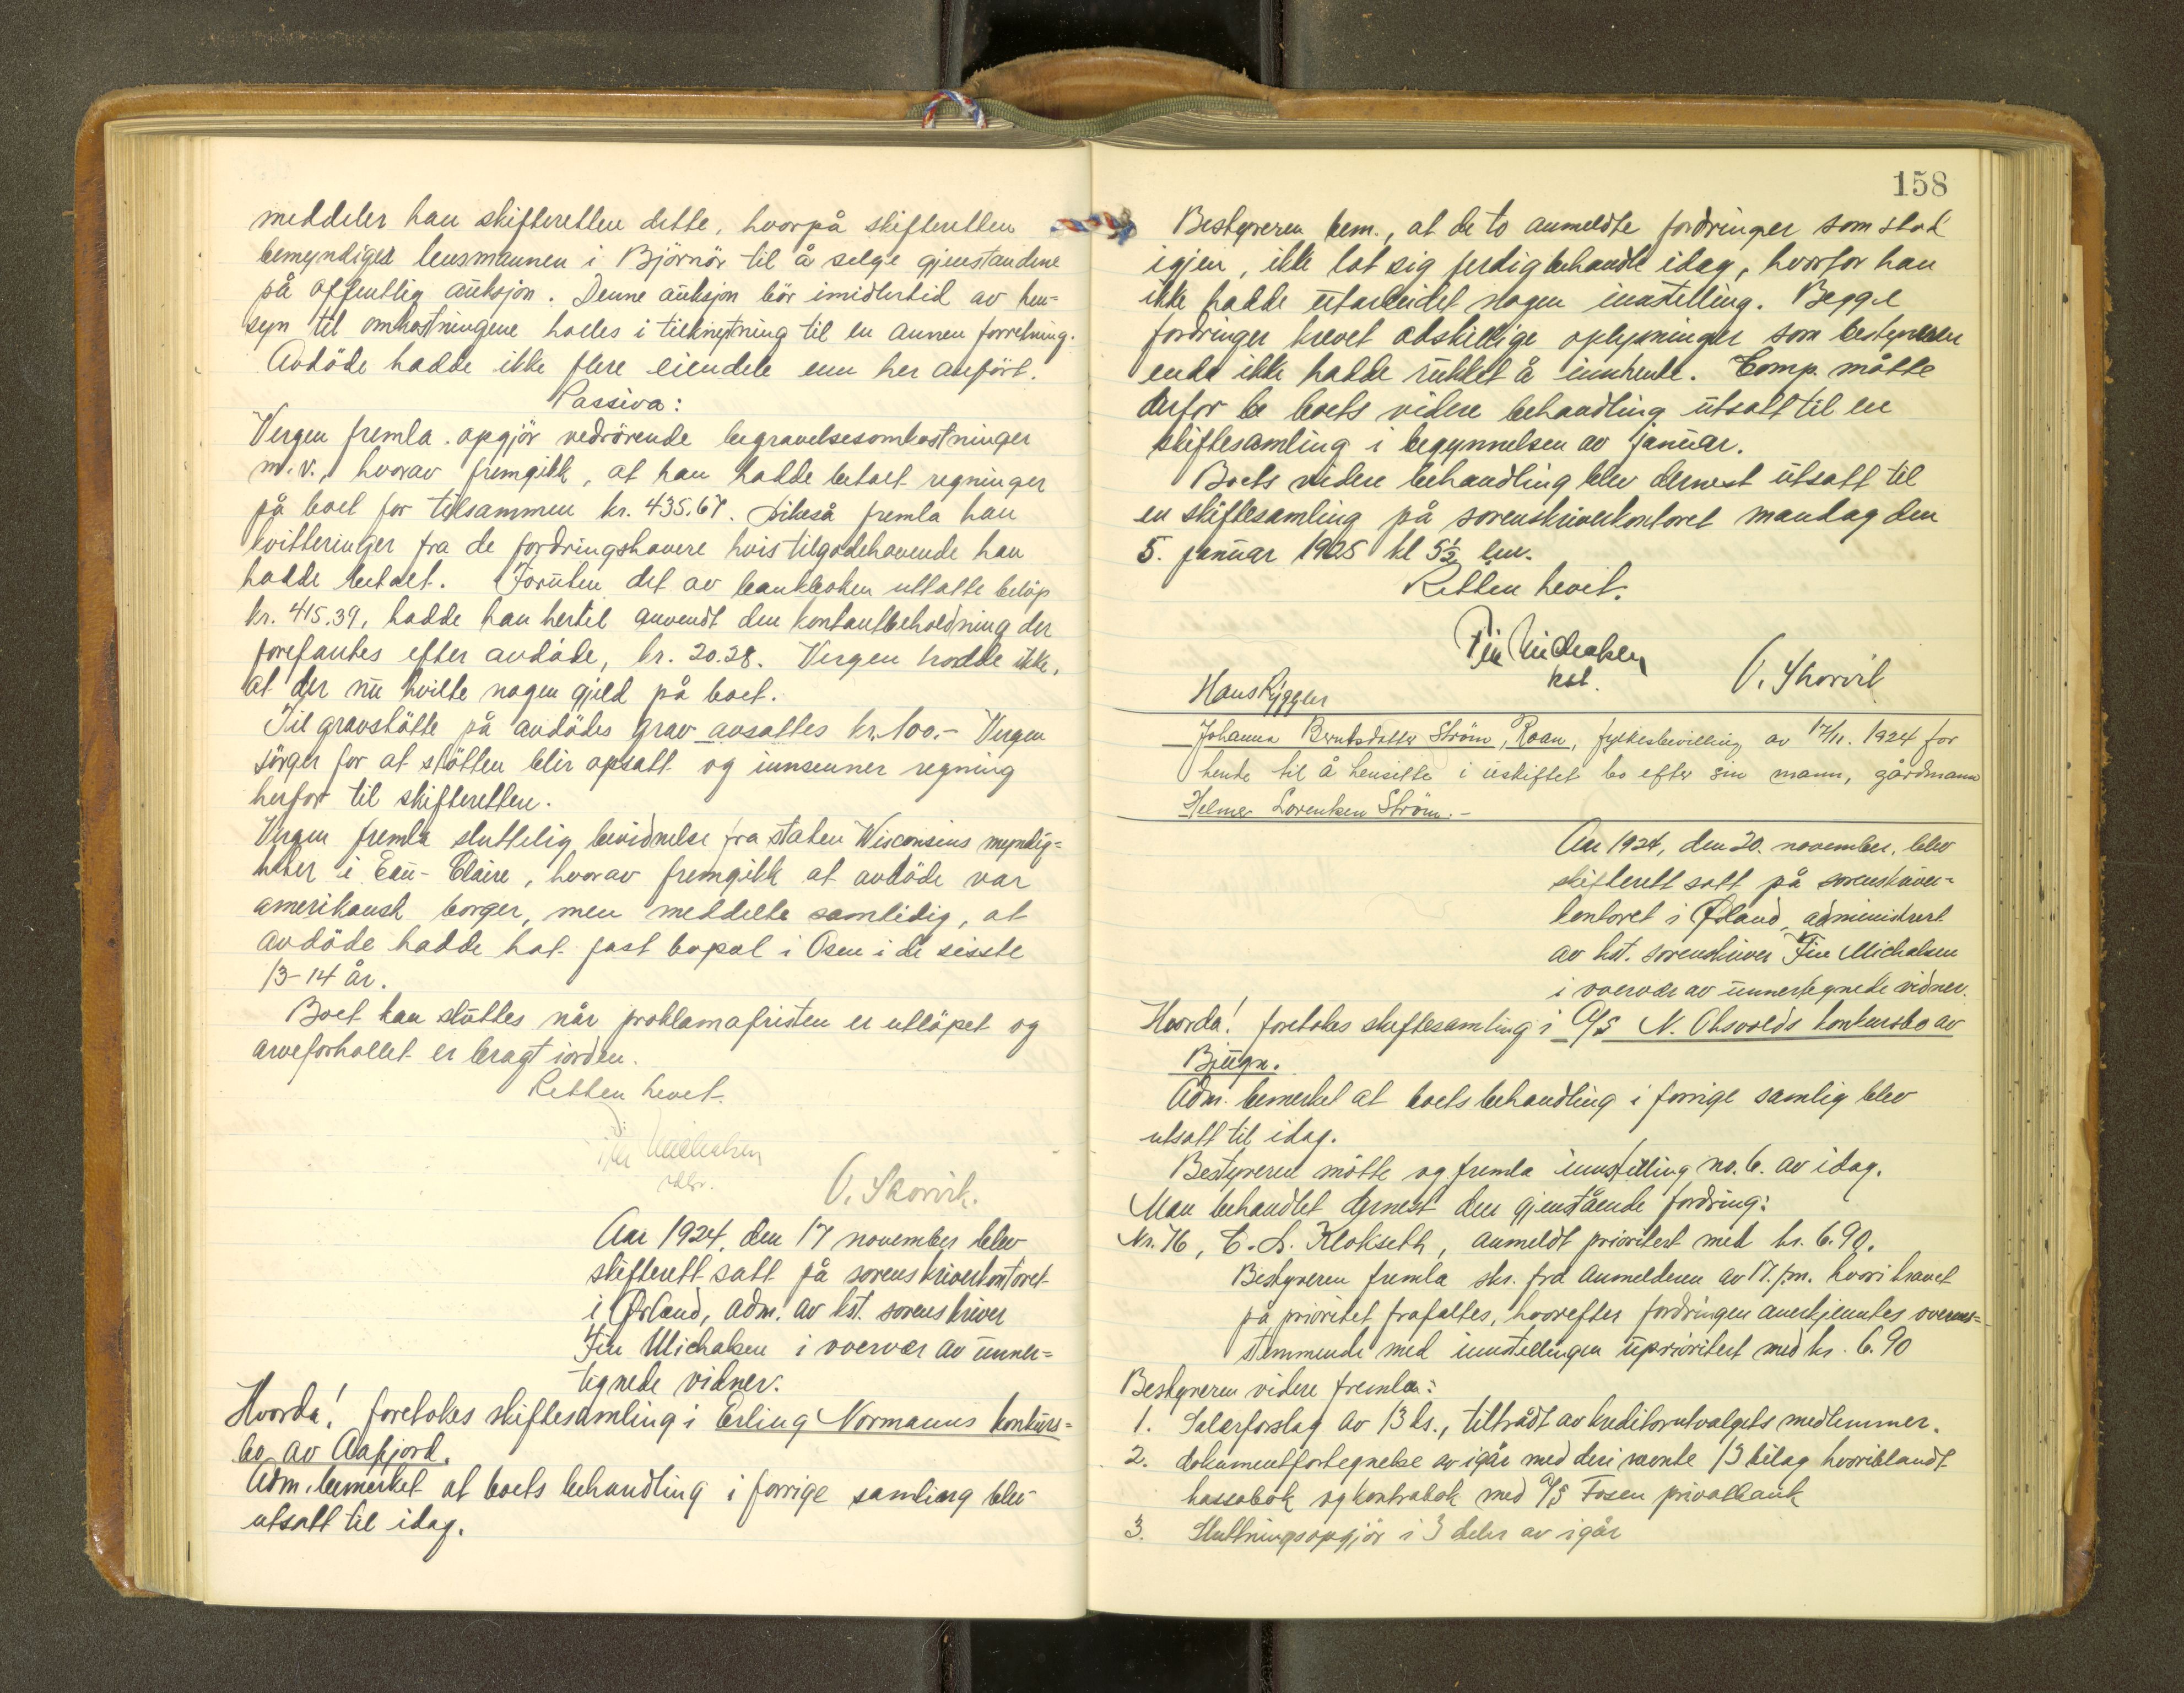 meddeler han skifteretten dette, hvorpå skifteretten
bemyndiger lensmannen i Björnör til å selge gjenstandene
på offentlig auksjon. Denne auksjon bör imidlertid av hen=
syn til omkostningene holles i tilknytning til en annen forretning.
Avdöde hadde ikke flere eiendele enn her anfört.
Passiva:
Vergen fremla opgjör vedrörende begravelsesomkostninger
m.v., hvorav fremgikk, at han hadde betalt regninger
på boet for tilsammen kr. 435.67. Likeså fremla han
kvitteringer fra de fordringshavere hvis tilgodehavende han
hadde betalt. Foruten det av bankboken uttatte belöp
kr. 415.39, hadde han hertil anvendt den kontantbeholdning der
forefantes efter avdöde, kr. 20.28. Vergen trodde ikke,
at der nu hvilte nogen gjeld på boet.
Til gravstötte på avdödes grav avsattes kr. 100.- Vergen
sörger for at stötten blir opsatt og innsenner regning
herfor til skifteretten.
Vergen fremla sluttelig bevidnelse fra staten Wisconsins myndig=
heter i Eau-Claire, hvorav fremgikk at avdöde var
amerikansk borger, men meddelte samtidig, at
avdöde hadde hat fast bopæl i Osen i de sisste
13-14 år.
Boet kan sluttes når proklamafristen er utlöpet og
arveforhollet er bragt iorden.
Retten hevet.
Fin Michalsen
O. Skorvik.
Aar 1924, den 17 november blev
skifterett satt på sorenskriverkontoret
i Ørland, adm. av kst. sorenskriver
Fin Michalsen i overvær av unner=
tegnede vidner.
Hvorda! foretokes skiftesamling i Erling Normanns konkurs=
bo av Aafjord.
Adm. bemerket at boets behandling i forrige samling blev
utsatt til idag.
158
Bestyreren bem., at de to anmeldte fordringer som stod
igjen, ikke lot sig ferdigbehandle idag, hvorfor han
ikke hadde utarbeidet nogen innstilling. Begge
fordringer krevet adskillige oplysninger som bestyreren
enda ikke hadde rukket å innhente. Comp. måtte
derfor be boets videre behandling utsatt til en
skiftesamling i begynnelsen av januar.
Boets videre behandling blev dernest utsatt til
en skiftesamling på sorenskriverkontoret mandag den
5. januar 1925 kl 5½ em.
Retten hevet.
Fin Michalsen
kst.
O. Skorvik
Hans Rygger
Johanna Berntsdatter Ström, Roan, fylkesbevilling av 17/11. 1924 for
hende til å hensitte i uskiftet bo efter sin mann, gårdmann
Helmer Lorentsen Ström.-
Aar 1924, den 20. november, blev
skifterett satt på sorenskriver=
kontoret i Ørland, administrert
av kst. sorenskriver Fin Michalsen
i overvær av unnertegnede vidner.
Hvorda! foretokes skiftesamling i A/S N. Oksvolds konkursbo av
Bjugn.
Adm. bemerket at boets behandling i forrige samlig blev
utsatt til idag.
Bestyreren mötte og fremla innstilling no. 6. av idag.
Man behandlet dernest den gjenstående fordring:
Nr. 76, C. A. Klokseth, anmeldt prioritert med kr. 6.90.
Bestyreren fremla skr. fra anmelderen av 17. f.m. hvori kravet
på prioritet frafaltes, hvorefter fordringen anerkjenntes overens=
stemmende med innstillingen uprioritert med kr. 6.90
Bestyreren videre fremla:
1. Salærforslag av 13 ds., tiltrådt av kreditorutvalgets medlemmer.
2. dokumentfortegnelse av igår med deri nevnte 13 bilag hvoriblandt
kassabok og kontrabok med A/S Fosen privatbank
3. Sluttningsopgjör i 3 deler av igår